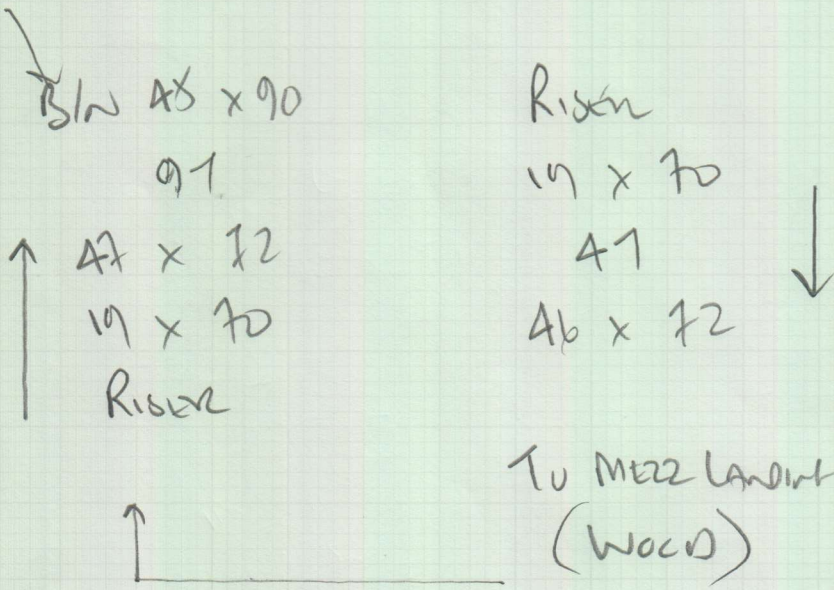 B/N 48 x 90
91
47 x 72
19 x 70
RISER
RISER
19 x 70
41
46 x 72
TO MEZZ LANDING
(WOOD)